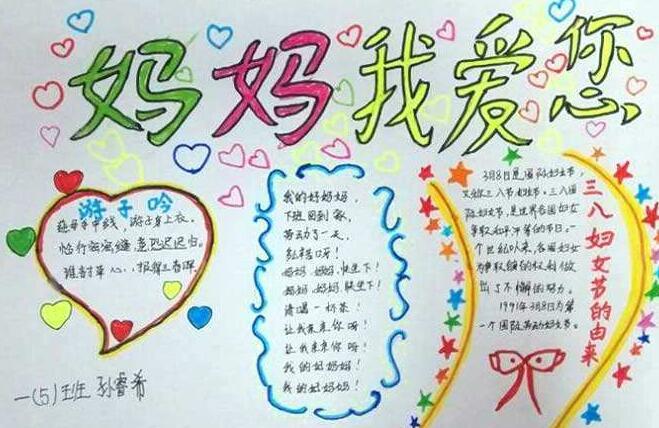 妈妈我爱您
游子吟
慈母手中线，游子身上衣。
临行密密缝，意恐迟迟归。
谁言寸草心，报得三春晖。
一(5)班 孙睿希
我的好妈妈，
下班回到家，
劳动了一天，
多辛苦呀！
妈妈，妈妈，快坐下！
妈妈，妈妈，快坐下！
请喝一杯茶！
让我亲亲你呀！
让我亲亲你呀！
我的好妈妈！
我的好妈妈！
三八妇女节的由来
3月8日是国际妇女节，
又称三八节，妇女节，三八国
际妇女节，是世界各国妇女
争取和平平等的节日。一
个世纪以来，各国妇女
为争取她们的权利做
出了不懈的努力。
1991年3月8日为第
一个国际劳动妇女节。